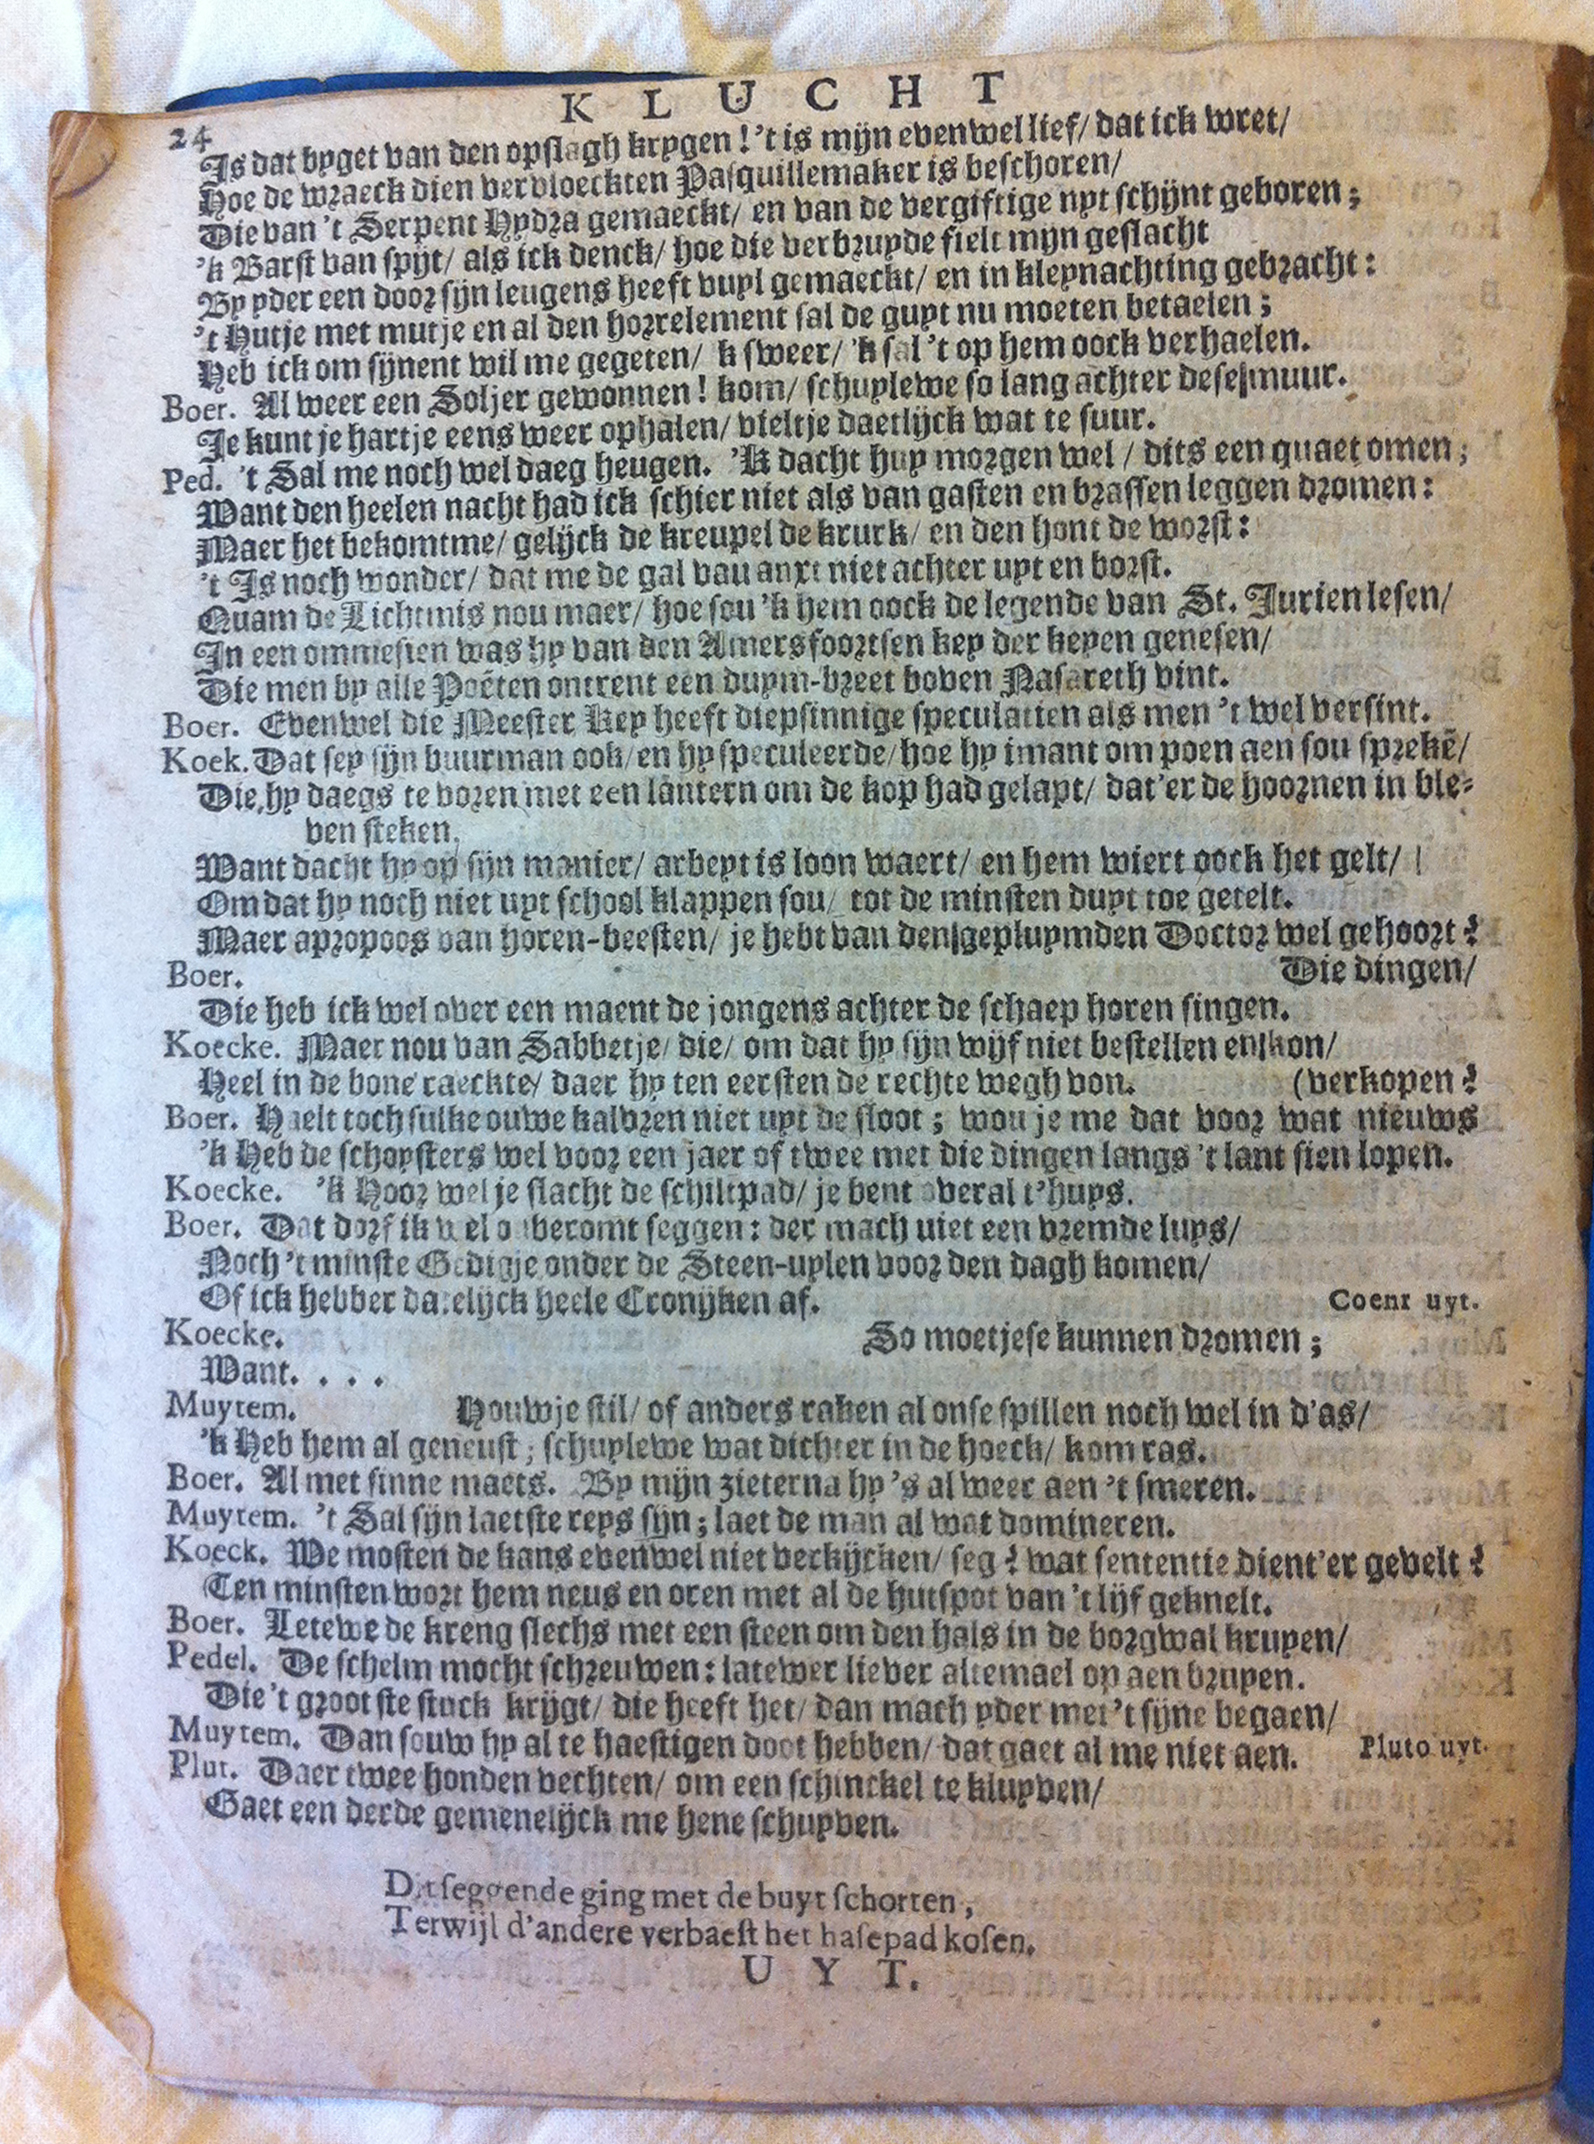 KLUCHT
24
Is dat byget van den opslagh krygen! 't is mijn evenwel lief/ dat ick wret/
Hoe de wraeck dien vervloeckten Pasquillemaker is beschoren/
Die van 't Serpent Hydra gemaeckt/ en van de vergiftige nyt schijnt geboren;
'k Barst van spijt/ als ick denck/ hoe die verbruyde fielt mijn geslacht
By yder een door sijn leugens heeft vuyl gemaeckt/ en in kleynachting gebracht:
't Hutje met mutje en al den horrelement sal de guyt nu moeten betaelen;
Heb ick om sijnent wil me gegeten/ k sweer/ 'k sal 't op hem oock verhaelen.
Boer. Al weer een Soljer gewonnen! kom/ schuylewe so lang achter dese muur.
Je kunt je hartje eens weer ophalen/ vieltje daetlijck wat te suur.
Ped. 't Sal me noch wel daeg heugen. 'K dacht huy morgen wel / dits een quaet omen;
Want den heelen nacht had ick schier niet als van gasten en brassen leggen dromen:
Maer het bekomtme/ gelijck de kreupel de kruck/ en den hont de worst:
't Is noch wonder/ dat me de gal vau anxt niet achter uyt en borst.
Quam de Lichtmis nou maer/ hoe sou 'k hem oock de legende van St. Jurien lesen/
In een omniesien was hy van den Amersfoortsen key der keyen genesen/
Die men by alle Poëten ontrent een duym-breet boven Nasareth vint.
Boer. Evenwel die Meester Key heeft diepsinnige speculatien als men 't wel versint.
Koek. Dat sey sijn buurman ook/ en hy speculeerde/ hoe hy imant om poen aen sou sprekē/
Die hy daegs te voren met een lantern om de kop had gelapt/ dat'er de hoornen in ble-
ven steken.
Want dacht hy op sijn manier/ arbeyt is loon waert/ en hem wiert oock het gelt/
Om dat hy noch niet uyt school klappen sou/ tot de minsten duyt toe getelt.
Maer apropoos van horen-beesten/ je hebt van den gepluymden Doctor wel gehoort?
Boer. Die dingen/
Die heb ick wel over een maent de jongens achter de schaep horen singen.
Koecke. Maer nou van Sabbetje/ die/ om dat hy sijn wijf niet bestellen en kon/
Heel in de bone raeckte/ daer hy ten eersten de rechte wegh von. (verkopen?
Boer. Haelt toch sulke ouwe kalvren niet uyt de sloot; wou je me dat voor wat nieuws
'k Heb de schoysters wel voor een jaer of twee met die dingen langs 't lant sien lopen.
Koecke. 'k Hoor wel je slacht de schiltpad/ je bent overal t'huys.
Boer. Dat dorf ik wel onberomt seggen: der mach niet een vremde luys/
Noch 't minste Gedigje onder de Steen-uylen voor den dagh komen/
Of ick hebber datelijck heele Cronijken af. Coent uyt.
Koecke. So moetjese kunnen dromen;
Want. . . .
Muytem. Houwje stil/ of anders raken al onse spillen noch wel in d'as/
'k Heb hem al geneust; schuylewe wat dichter in de hoeck/ kom ras.
Boer. Al met sinne maets. By mijn zieterna hy 's al weer aen 't smeren.
Muytem. 't Sal sijn laetste reys sijn; laet de man al wat domineren.
Koeck. We mosten de kans evenwel niet verkijcken/ seg? wat sententie dient'er gevelt?
Ten minsten wort hem neus en oren met al de hutspot van 't lijf geknelt.
Boer. Letewe de kreng slechs met een steen om den hals in de borgwal kruyen/
Pedel. De schelm mocht schreuwen: latewer liever altemael op aen bruyen.
Die 't grootste stuck krijgt/ die heeft het/ dan mach yder met 't sijne begaen/
Muytem. Dan souw hy al te haestigen doot hebben/ dat gaet al me niet aen. Pluto uyt.
Plut. Daer twee honden vechten/ om een schinckel te kluyven/
Gaet een derde gemenelijck me hene schuyven.
Dit seggende ging met de buyt schorten,
Terwijl d'andere verbaest het hasepad kosen.
UYT.